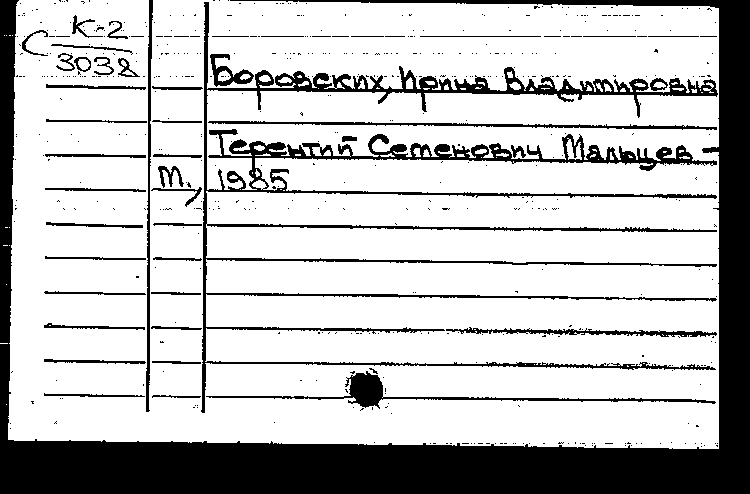 С К-2
3038
Боровских, Ирина Владимировна
Терентий Семенович Мальцев –
М., 1985